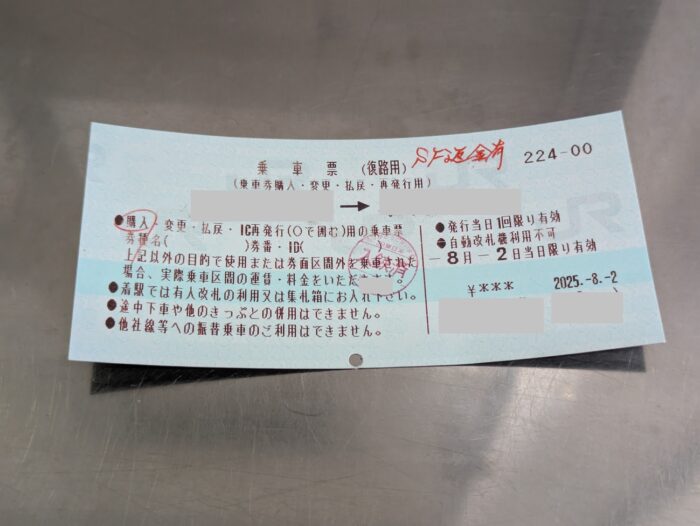 乗車票 (復路用)
SF返金済
224-00
(乗車券購入・変更・払戻・再発行用)
→
●購入・変更・払戻・IC再発行(○で囲む)用の乗車票
券種名( )券番・ID( )
上記以外の目的で使用または券面区間外を乗車された
場合、実際乗車区間の運賃・料金をいただ
●着駅では有人改札の利用又は集札箱にお入れ下さい。
●途中下車や他のきっぷとの併用はできません。
●他社線等への振替乗車のご利用はできません。
●発行当日1回限り有効
●自動改札機利用不可
-8月-2日当日限り有効
¥***
2025.-8.-2